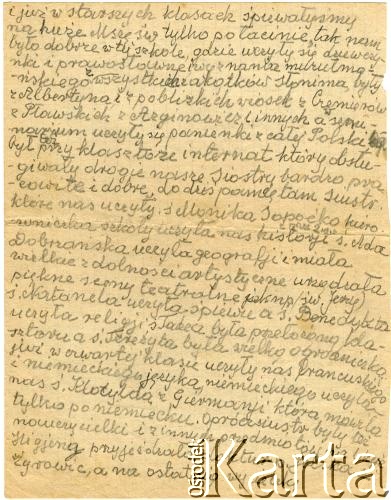 i już w starszych klasach śpiewałyśmy
na hurze Mszę św. tylko po łacinie, tak nam
było dobrze w tej szkole, gdzie uczyły się dziewczy-
nki i prawosławnego wyznania
z wszystkich zakątków Słonima, były
z Albertyna i z pobliskich wiosek z
z Pławskich z i innych a Semi-
narjum uczyły się panienki z całej Polski
był przy klasztorze internat który obsłu-
giwały drogie nasze Siostry bardzo pra-
cowite i dobre, do dziś pamiętam Siostr.
które nas uczyły, s Monika Sopoćko kiero-
wniczka szkoły uczyła nas historji s. Ada
Dobrzańska uczyła geografji i miała
wielkie zdolności artystyczne urządzała
piękne sceny teatralne św. Jerzy
s. Natanela uczyła śpiewu a s. Benedykta
uczyła religji, s Tadea była przełożoną kla-
sztoru a s. Terezyta była wielką ogrodniczką
już w czwartej klasie uczyły nas francuskiego
i niemieckiego języka, niemieckiego uczyła
nas s. Klotylda z Giermanji która mówiła
tylko po niemiecku. Oprócz siostr były też
nauczycielki z innych
Higjenę przyjeżdżała
Żyrowic, a na
ośrodek
Karta